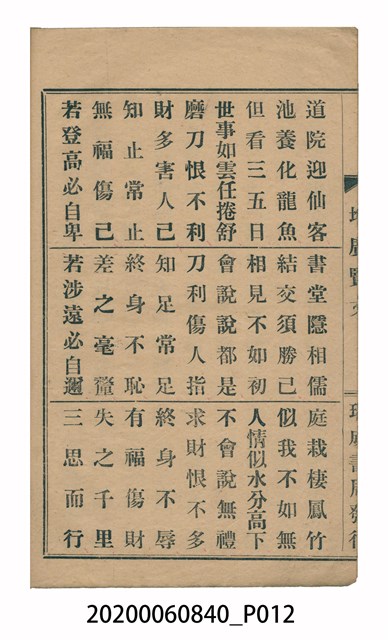 道院迎仙客 書堂隱相儒 庭栽棲鳳竹
池養化龍魚 結交須勝己 似我不如無
但看三五日 相見不如初 人情似水分高下
世事如雲任捲舒 會說說都是 不會說無禮
磨刀恨不利 刀利傷人指 求財恨不多
財多害人己 知足常足 終身不辱
知止常止 終身不恥 有福傷財
無福傷己 差之毫釐 失之千里
若登高必自卑 若涉遠必自邇 三思而行
20200060840_P012